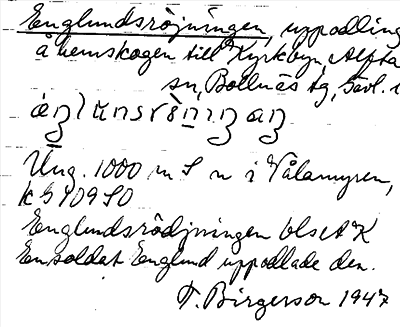 Englundsröjningen, uppodling
å hemskogen till Kyrkbyn, Alfta
sn, Bollnäs tg, Gävl. l
Ung. 1000 m S n i Vålamyren,
k G 4095O
Englundsrödjningen blsAK
En soldat Englund uppodlade den.
T. Birgerson 1947